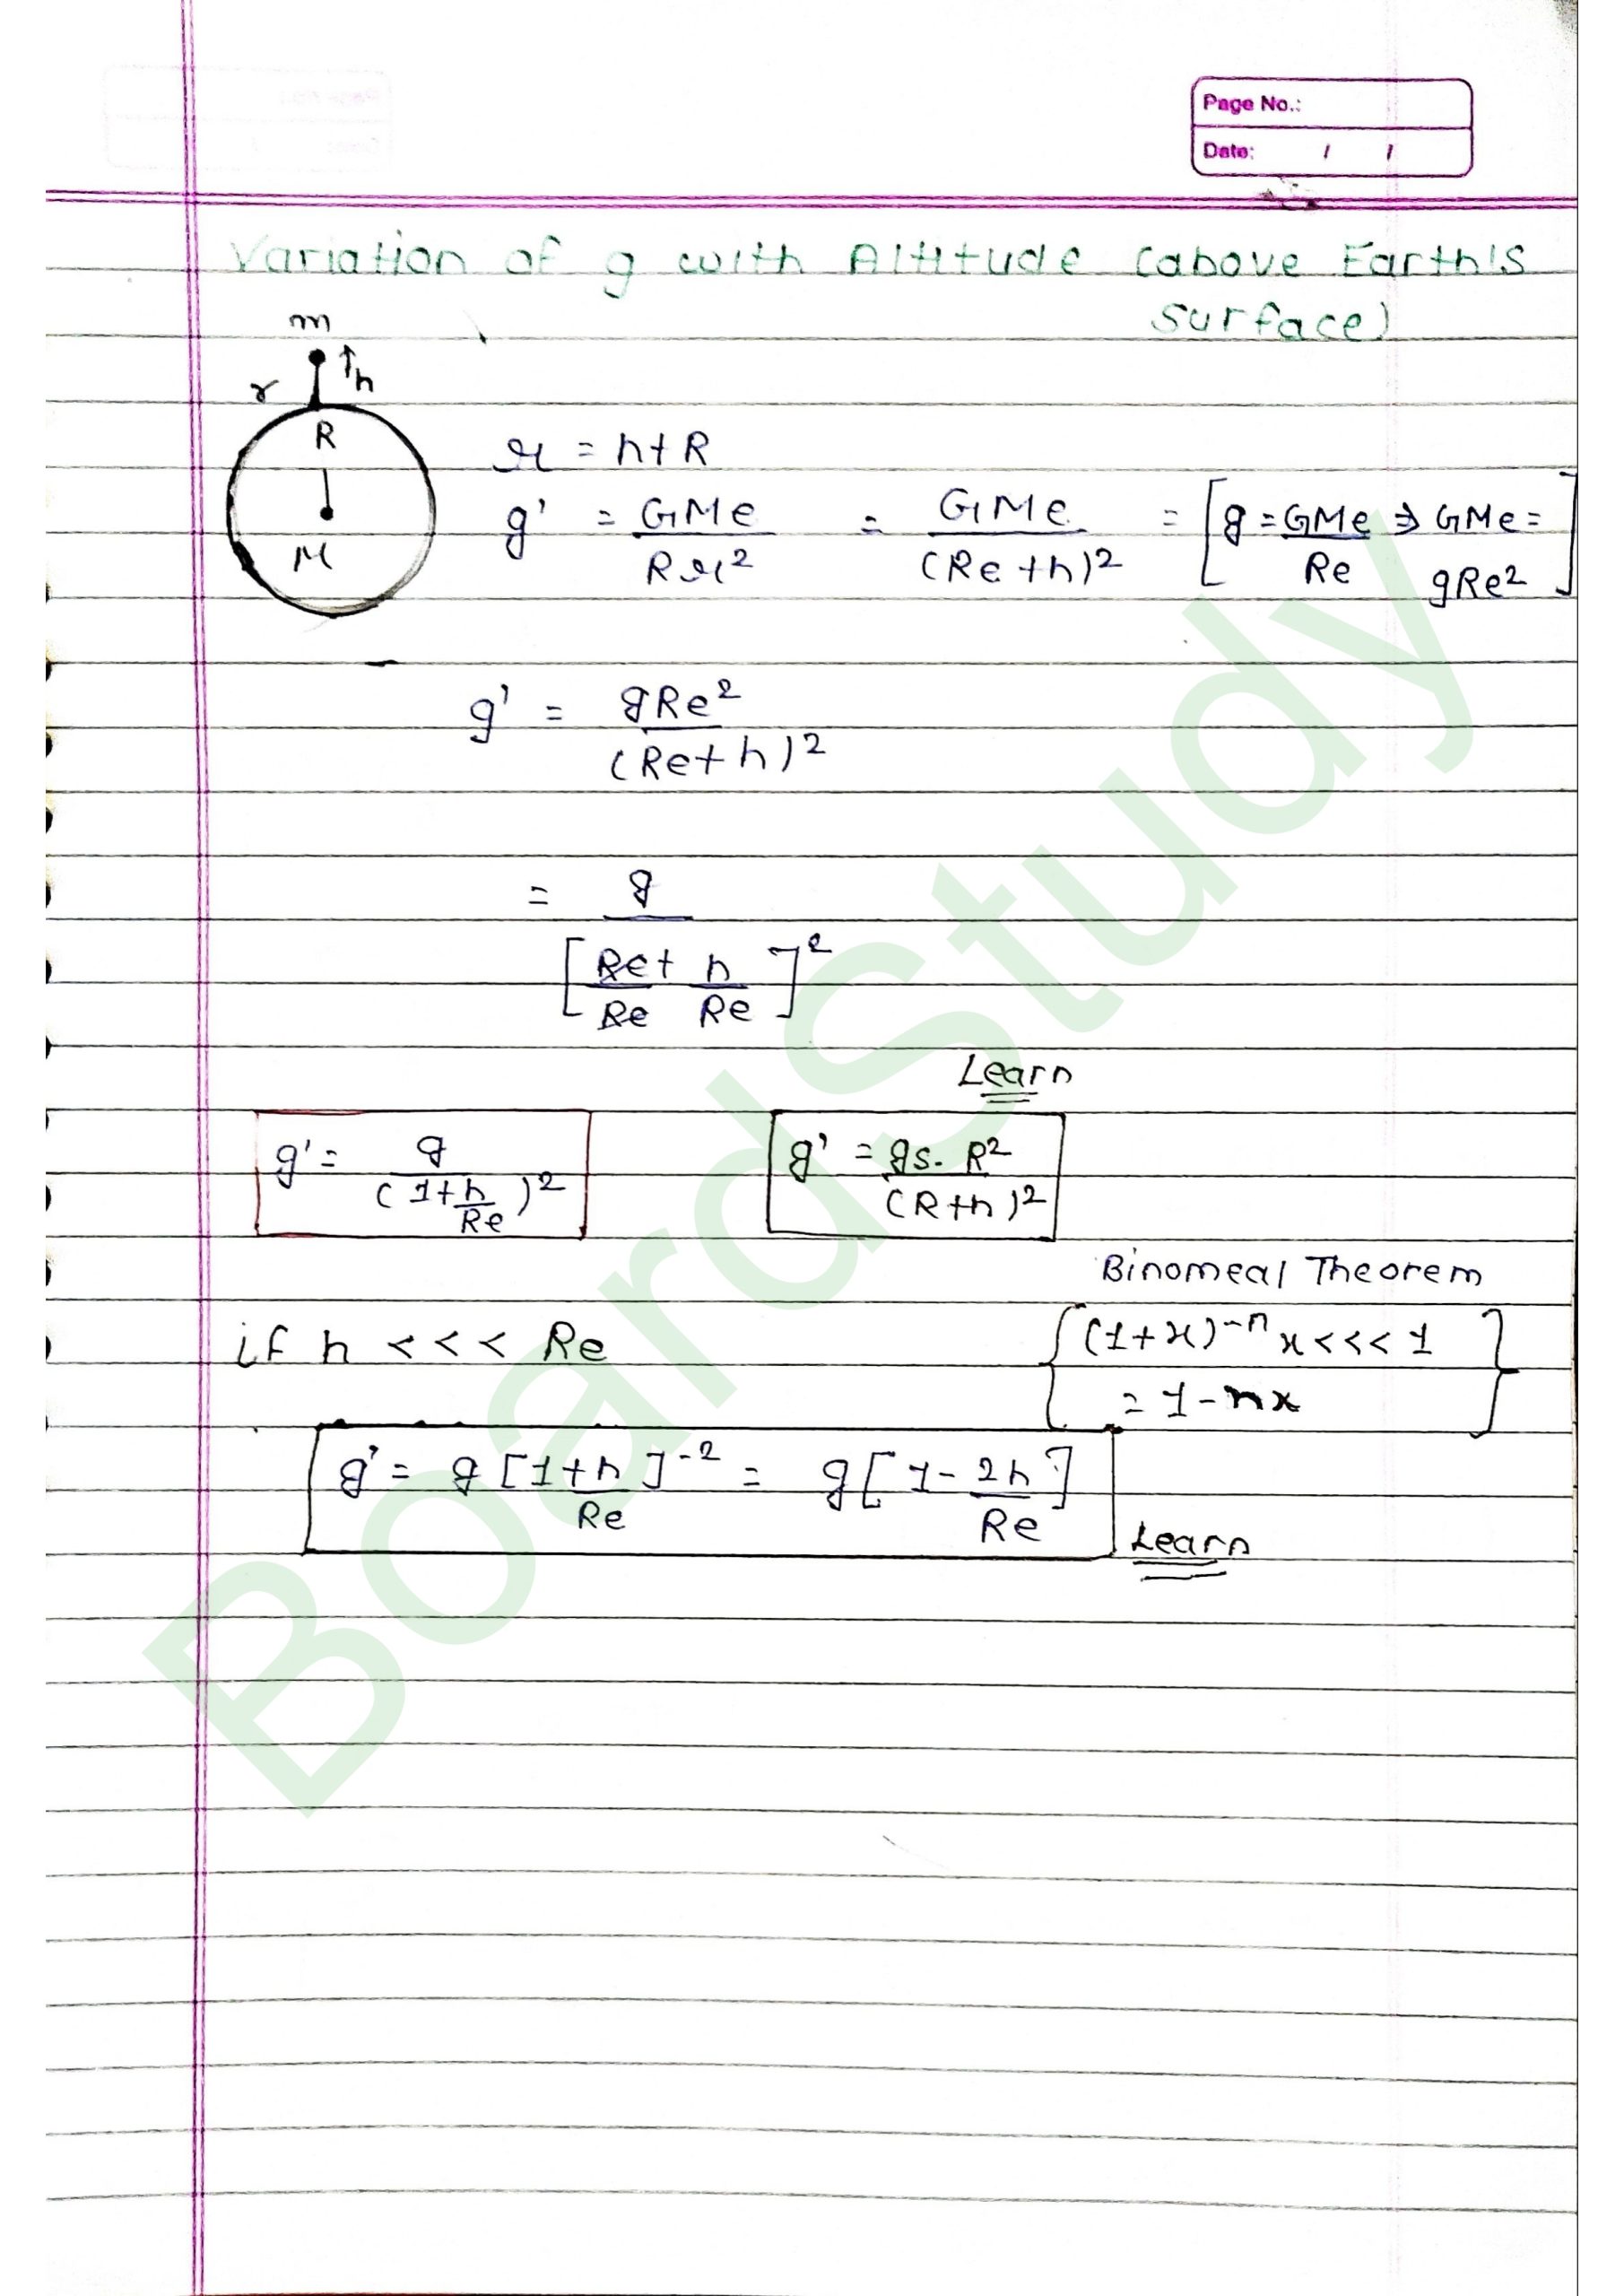 Page No.:
Date: / /
Variation of g with Altitude (above Earth's
Surface)
m
↑h
r
R
M
r = h+R
g' = GMe/Rr² = GMe/(Re+h)² = [g = GMe/Re ⇒ GMe = gRe²]
g' = gRe²/(Re+h)²
= g/[Re/Re + h/Re]²
Learn
g' = g/(1+h/Re)²
g' = gs. R²/(R+h)²
Binomeal Theorem
if h <<< Re
{(1+x)⁻ⁿ x<<<1
= 1-nx}
g' = g[1+h/Re]⁻² = g[1-2h/Re]
Learn
BoardStudy